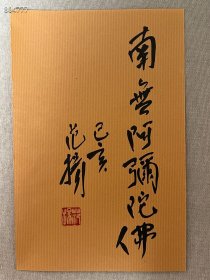 南無阿彌陀佛
己亥
范擴